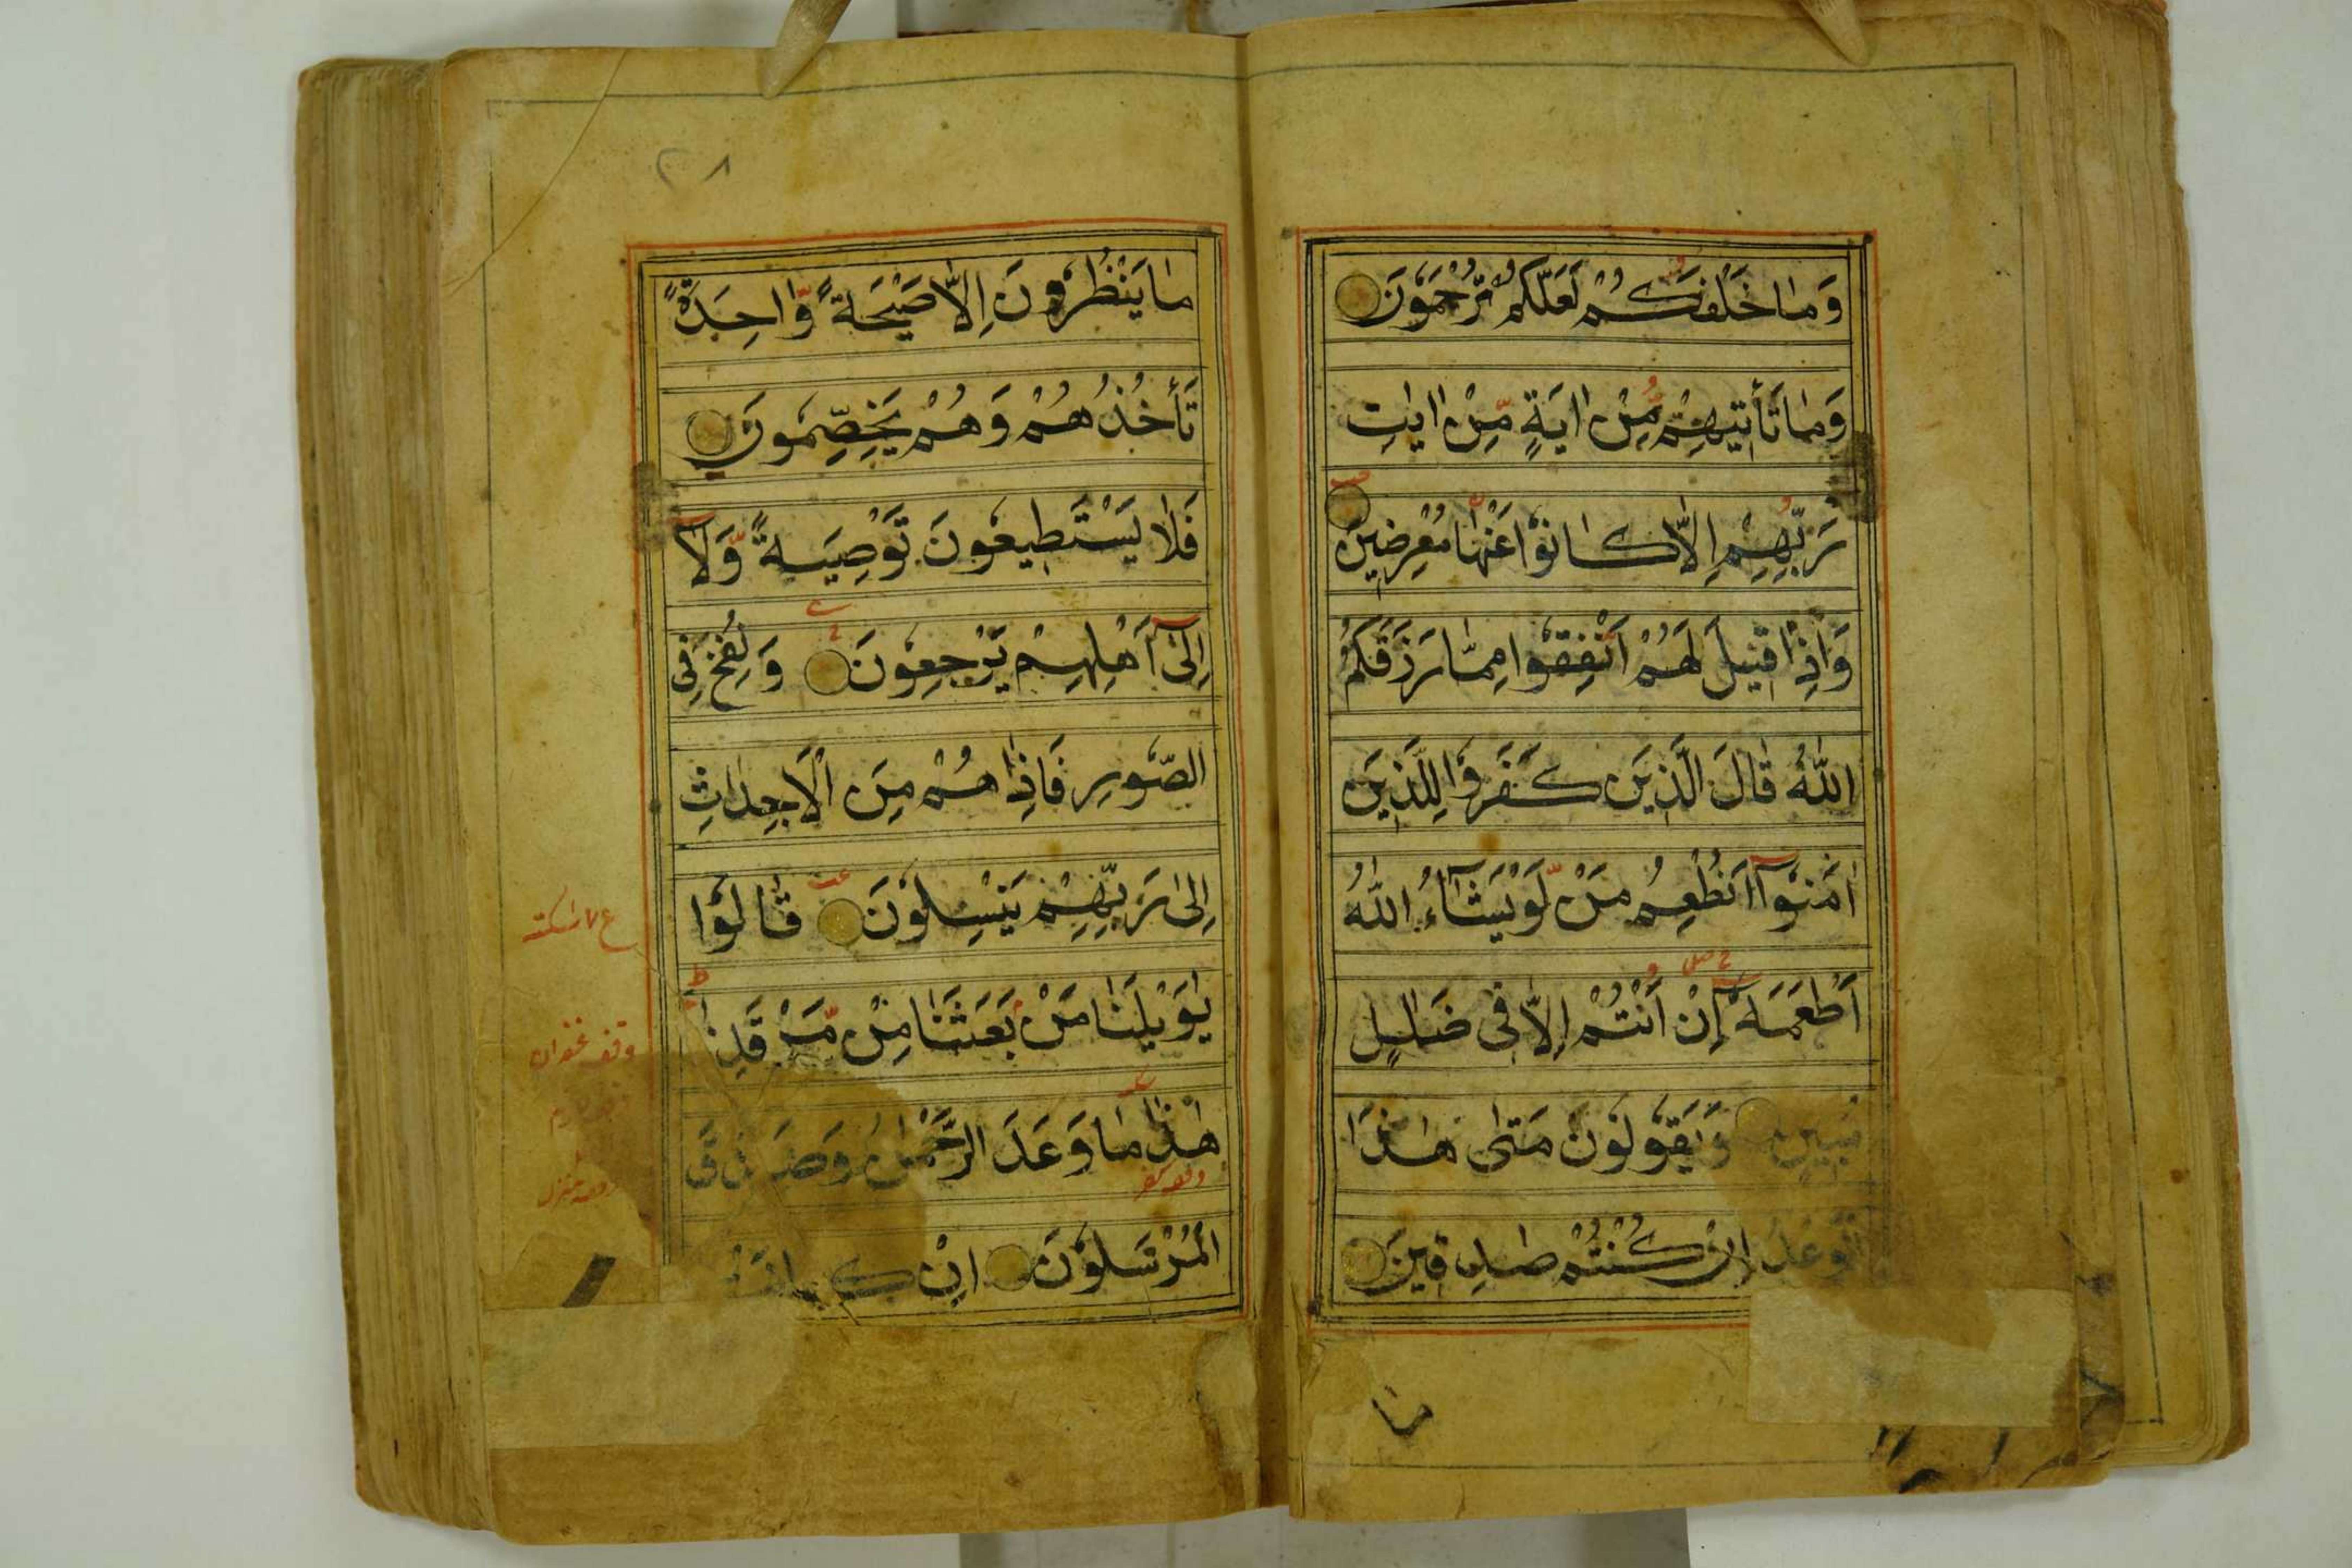 وَمَا خَلْفَكُمْ لَعَلَّكُمْ تُرْحَمُوْنَ
وَمَا تَأْتِيْهِمْ مِّنْ اٰيَةٍ مِّنْ اٰيٰتِ
رَبِّهِمْ اِلَّا كَانُوْا عَنْهَا مُعْرِضِيْنَ
وَاِذَا قِيْلَ لَهُمْ اَنْفِقُوْا مِمَّا رَزَقَكُمُ
اللّٰهُ قَالَ الَّذِيْنَ كَفَرُوْا لِلَّذِيْنَ
اٰمَنُوْٓا اَنُطْعِمُ مَنْ لَّوْ يَشَآءُ اللّٰهُ
اَطْعَمَهٗٓ اِنْ اَنْتُمْ اِلَّا فِى ضَلٰلٍ
مُّبِيْنٍ وَيَقُوْلُوْنَ مَتٰى هٰذَا
الْوَعْدُ اِنْ كُنْتُمْ صٰدِقِيْنَ
ما
٢٨
مَا يَنْظُرُوْنَ اِلَّا صَيْحَةً وَّاحِدَةً
تَأْخُذُهُمْ وَهُمْ يَخِصِّمُوْنَ
فَلَا يَسْتَطِيْعُوْنَ تَوْصِيَةً وَّلَآ
اِلٰٓى اَهْلِهِمْ يَرْجِعُوْنَ وَنُفِخَ فِى
الصُّوْرِ فَاِذَا هُمْ مِنَ الْاَجْدَاثِ
اِلٰى رَبِّهِمْ يَنْسِلُوْنَ قَالُوْا
يٰوَيْلَنَا مَنْ بَعَثَنَا مِنْ مَّرْقَدِنَا
هٰذَا مَا وَعَدَ الرَّحْمٰنُ وَصَدَقَ
الْمُرْسَلُوْنَ اِنْ كَانَتْ
وقف غفران
وقف منزل